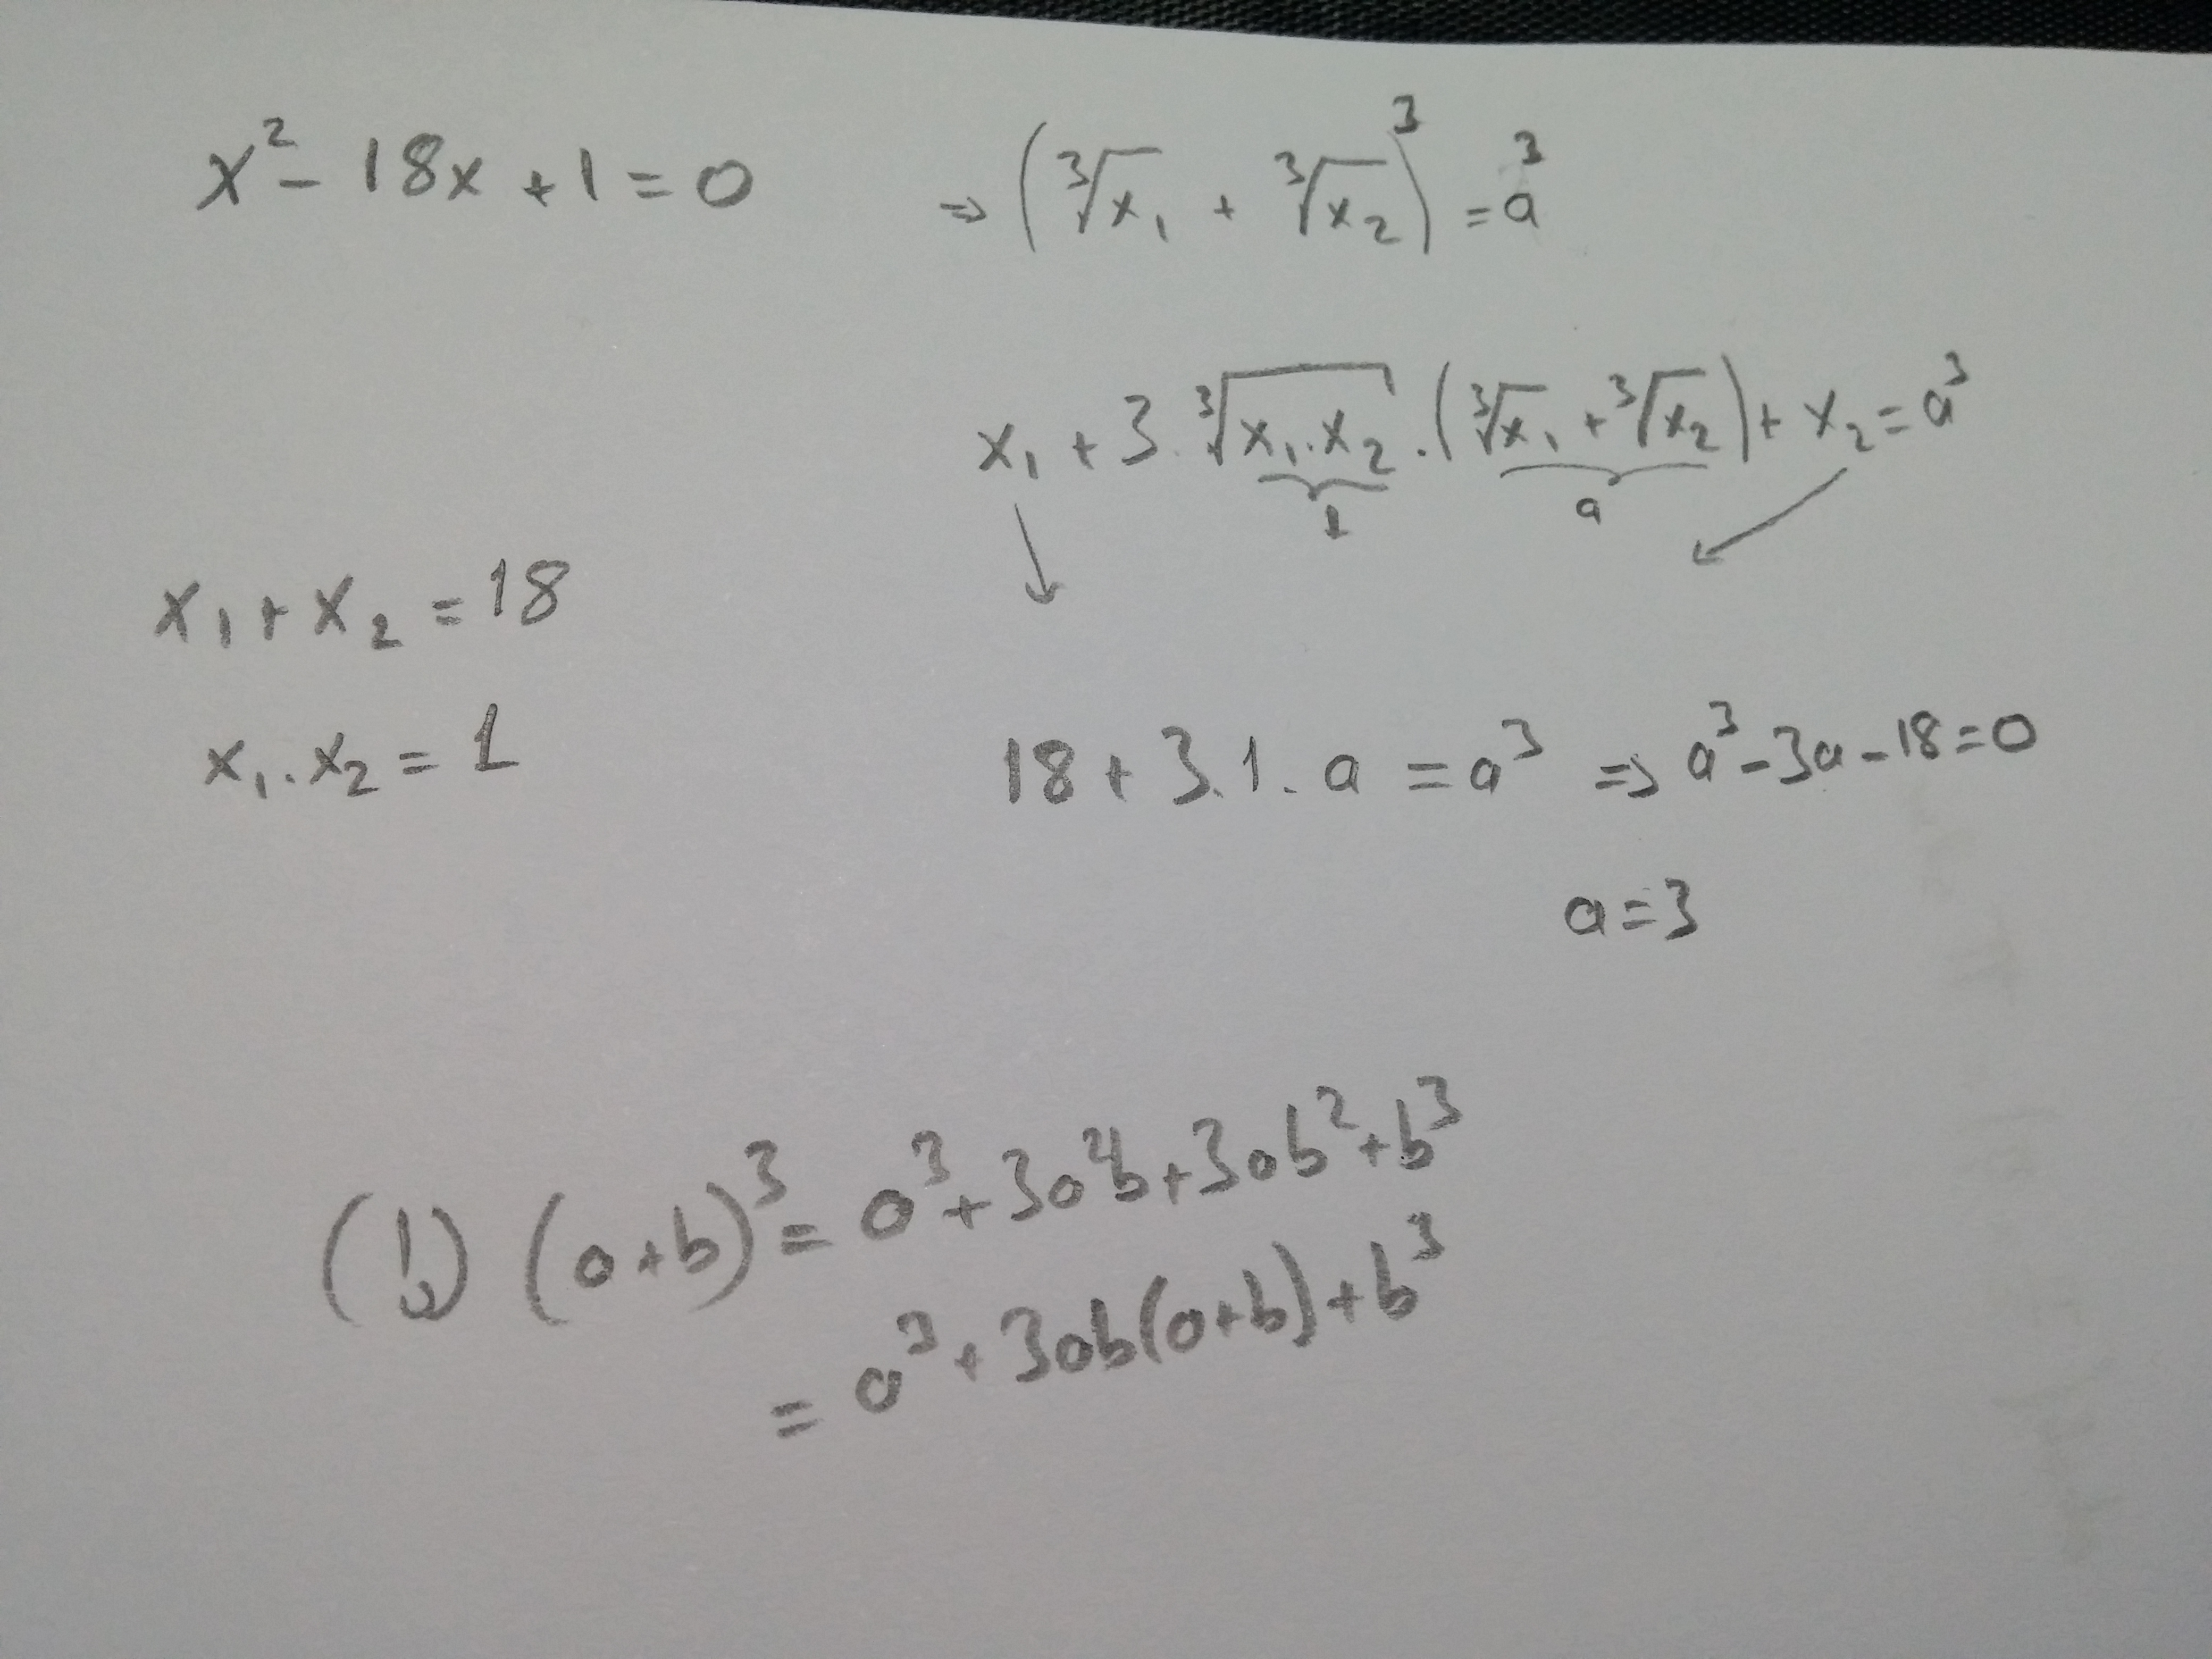 x² - 18x + 1 = 0
⇒ (∛x₁ + ∛x₂)³ = a³
x₁ + 3.∛(x₁.x₂).(∛x₁ + ∛x₂) + x₂ = a³
1 a
x₁ + x₂ = 18
x₁.x₂ = 1
18 + 3.1.a = a³ ⇒ a³ - 3a - 18 = 0
a = 3
(!) (a+b)³ = a³ + 3a²b + 3ab² + b³
= a³ + 3ab(a+b) + b³